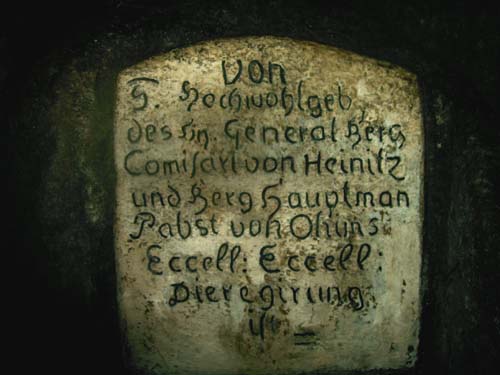 Von
S. Hochwohlgeb
des Hn. General Berg
Comisarl von Heinitz
und Berg Hauptman
Pabst von Ohims
Eccell: Eccell:
Dieregirung
ist =